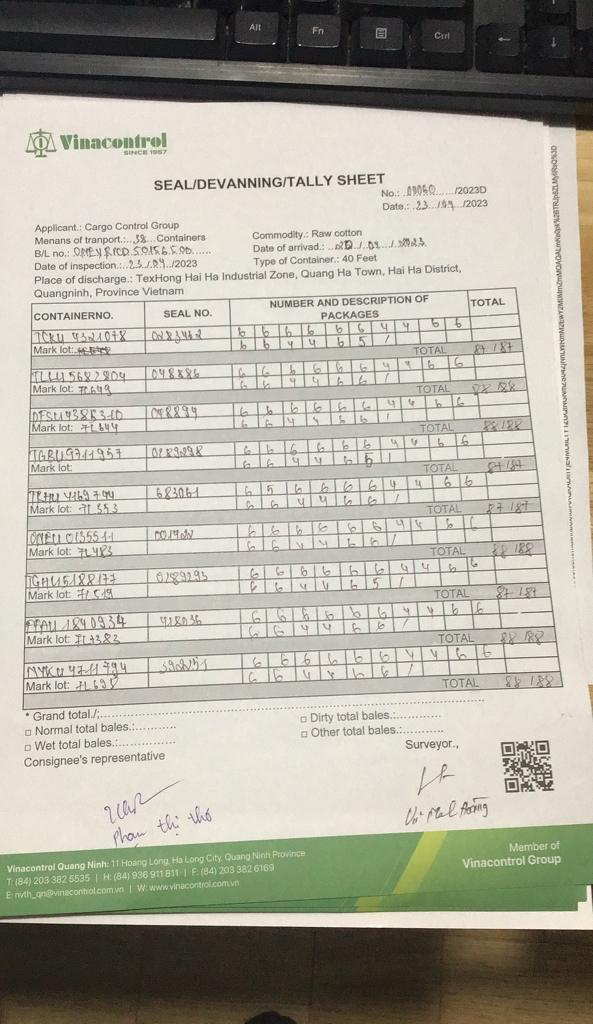 Alt
Fn
Ctrl
Vinacontrol
SINCE 1957
SEAL/DEVANNING/TALLY SHEET
No.: /2023D
Date.: 23 /04 /2023
Applicant.: Cargo Control Group
Menans of tranport.: Containers
Commodity.: Raw cotton
B/L no.:
Date of arrivad.:
Date of inspection.: 23 /04 /2023
Type of Container.: 40 Feet
Place of discharge.: TexHong Hai Ha Industrial Zone, Quang Ha Town, Hai Ha District,
Quangninh, Province Vietnam
CONTAINERNO. SEAL NO. NUMBER AND DESCRIPTION OF PACKAGES TOTAL
TCKU 4321078 0283462 6 6 6 6 6 6 4 4 6 6
6 6 4 4 6 5 /
Mark lot: TOTAL 87 / 87
TLLU 5682804 048886 6 6 6 6 6 6 4 4 6 6
6 6 4 4 6 6 /
Mark lot: 7L649 TOTAL 88 / 88
048894 6 6 6 6 6 6 4 4 6 6
6 6 4 4 6 6 /
Mark lot: 7L644 TOTAL 88 / 88
TGBU 9711957 0289298 6 6 6 6 6 6 4 4 6 6
6 6 4 4 6 5 /
Mark lot: TOTAL 87 / 87
683061 6 5 6 6 6 6 4 4 6 6
6 6 4 4 6 6 /
Mark lot: 7L553 TOTAL 87 / 87
6 6 6 6 6 6 4 4 6 6
6 6 4 4 6 6 /
Mark lot: 7L483 TOTAL 88 / 88
TGHU 5188177 0289293 6 6 6 6 6 6 4 4 6 6
6 6 4 4 6 5 /
Mark lot: 7L519 TOTAL 87 / 87
418036 6 6 6 6 6 6 4 4 6 6
6 6 4 4 6 6 /
Mark lot: TOTAL 88 / 88
6 6 6 6 6 6 4 4 6 6
6 6 4 4 6 6 /
Mark lot: 7L698 TOTAL 88 / 88
* Grand total./:
□ Normal total bales.:
□ Dirty total bales.:
□ Wet total bales.:
□ Other total bales.:
Consignee's representative
Surveyor.,
Phạm thị thơ
Vinacontrol Quang Ninh: 11 Hoang Long, Ha Long City, Quang Ninh Province
T: (84) 203 382 5535 | H: (84) 936 911 811 | F: (84) 203 382 6169
E: nvth_qn@vinacontrol.com.vn | W: www.vinacontrol.com.vn
Member of
Vinacontrol Group